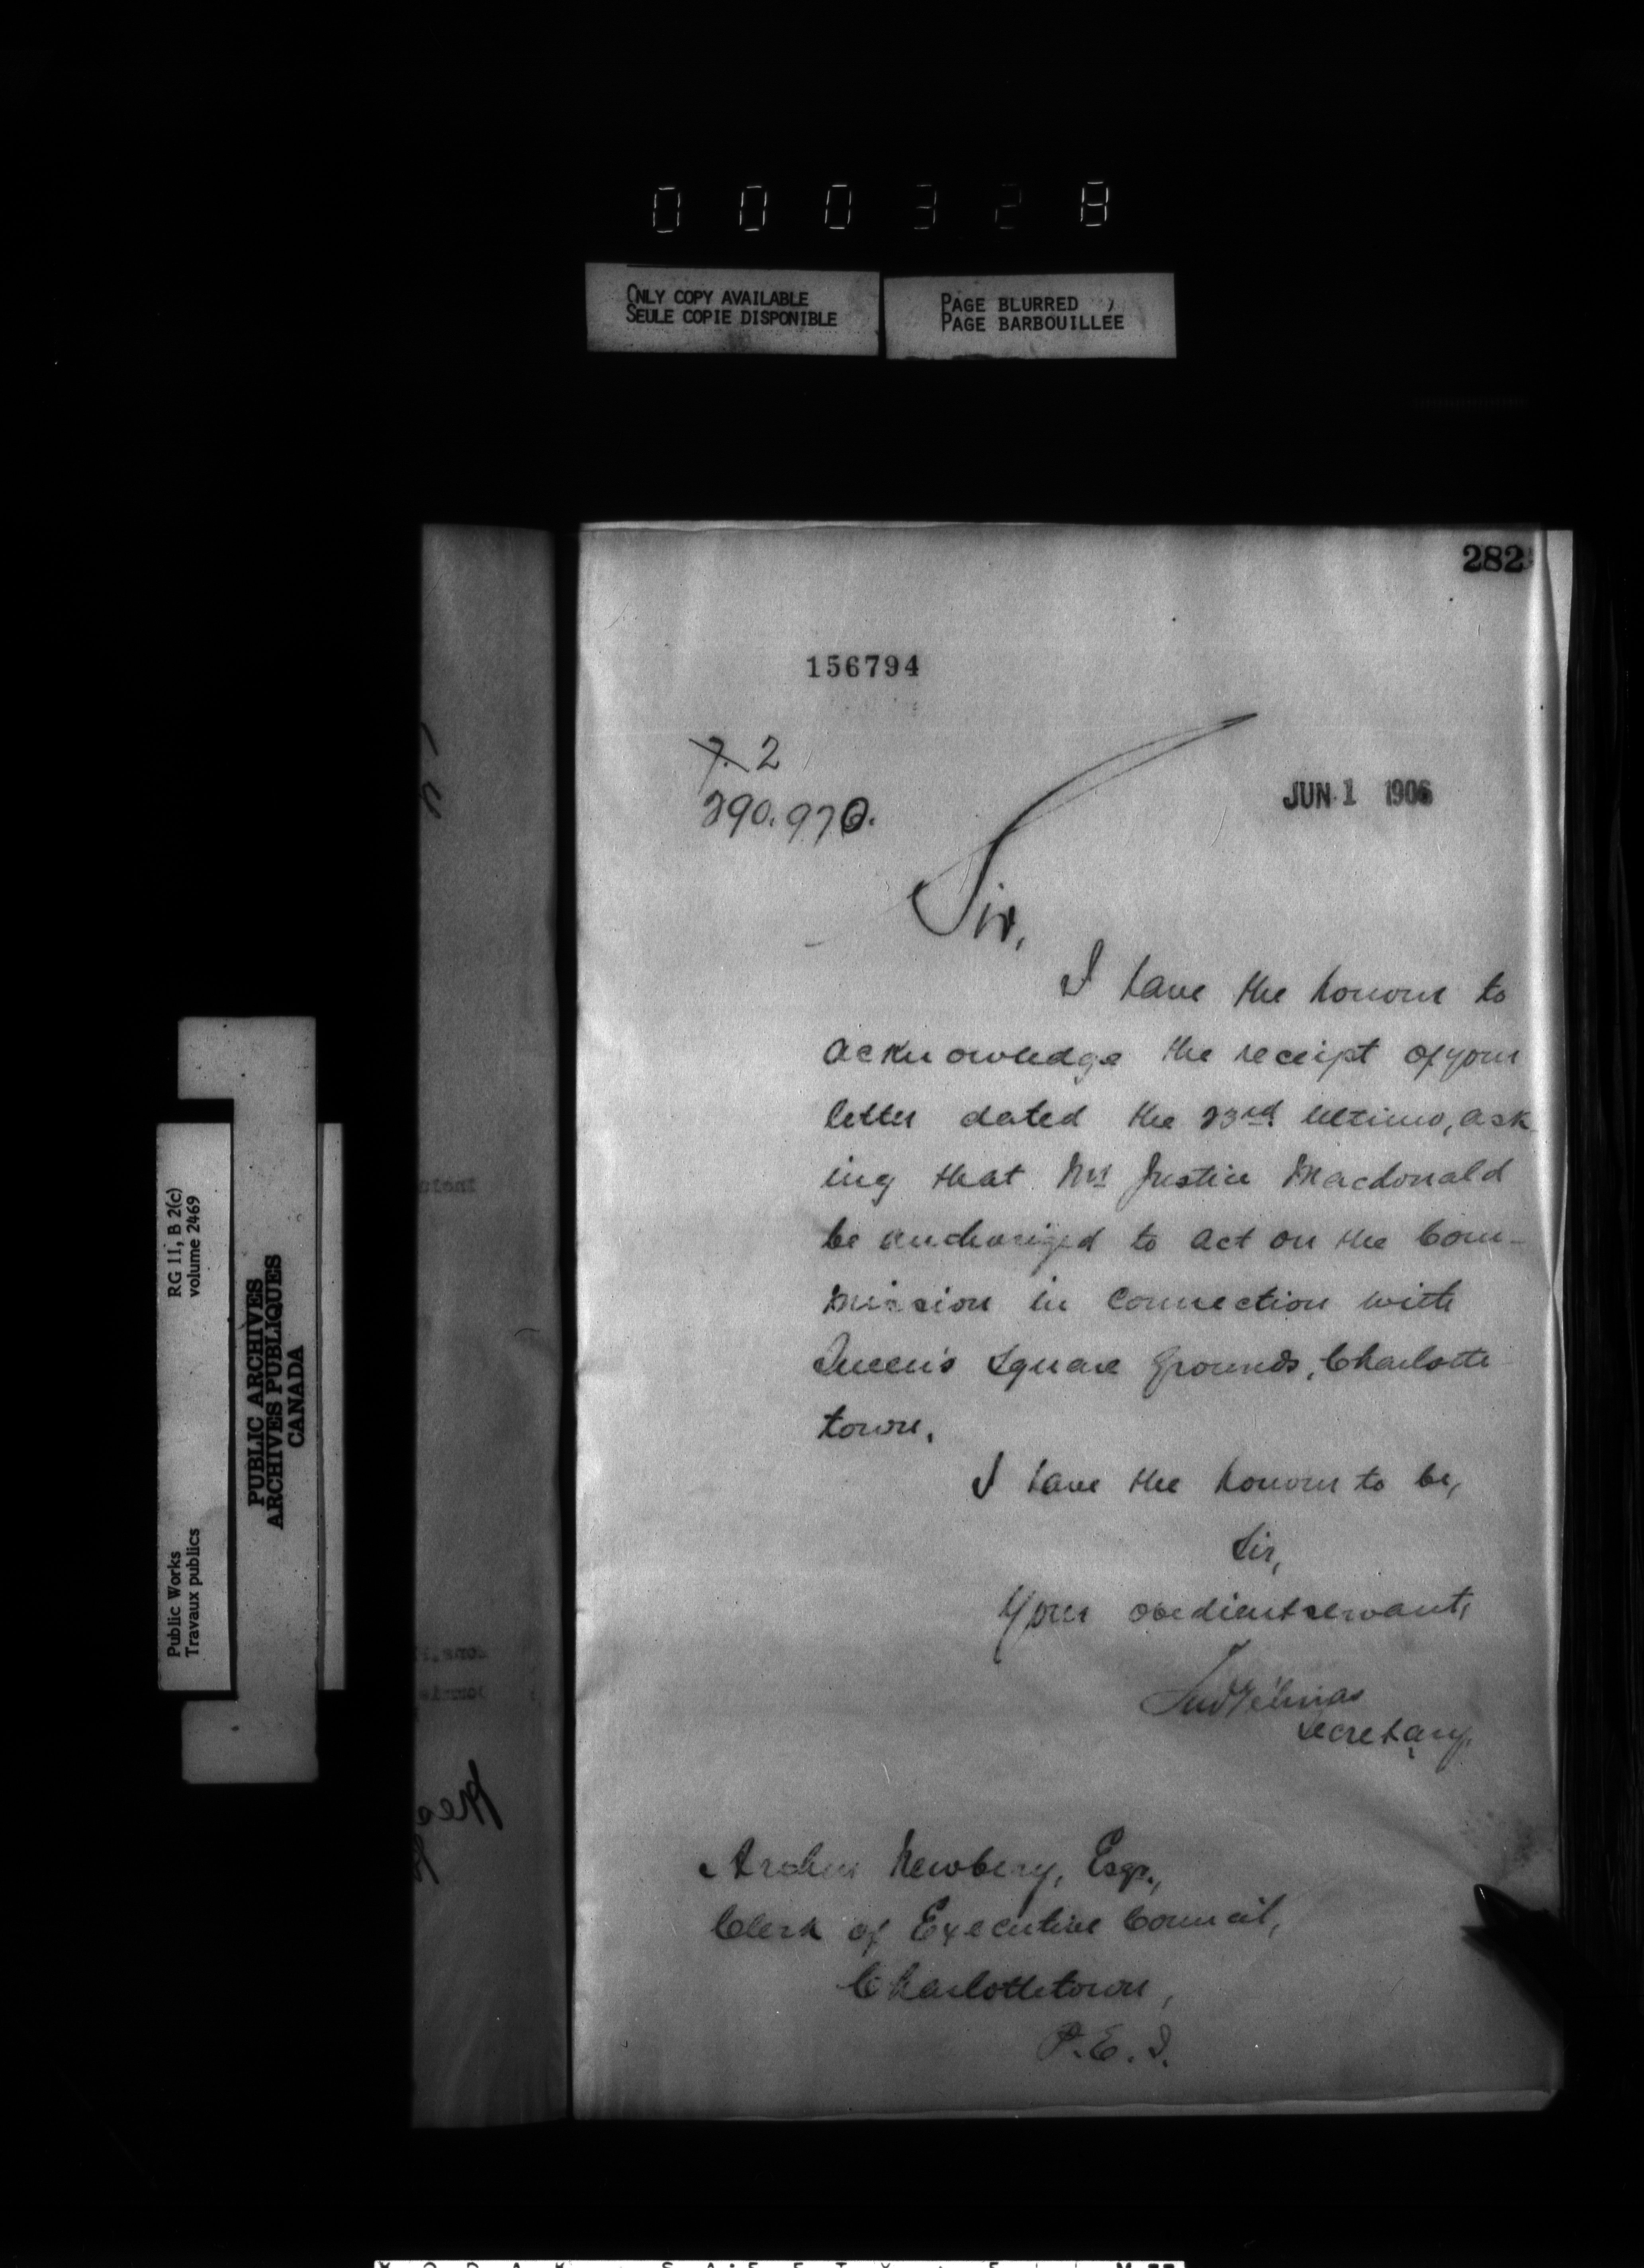 000328
ONLY COPY AVAILABLE
SEULE COPIE DISPONIBLE
PAGE BLURRED
PAGE BARBOUILLEE
282
156794
7. 2
290.970.
JUN 1 1906
Sir,
I have the honour to
acknowledge the receipt of your
letter dated the 23rd ultimo, ask
ing that Mr Justice Macdonald
be authorized to act on the Com-
mission in connection with
Queen's Square Grounds, Charlotte
town.
I have the honour to be,
Sir,
Your obedient servant,
Fred Gélinas
Secretary.
Arthur Newbery, Esqr.,
Clerk of Executive Council,
Charlottetown,
P.E.I.
RG 11, B 2(c)
volume 2469
Public Works
Travaux publics
PUBLIC ARCHIVES
ARCHIVES PUBLIQUES
CANADA